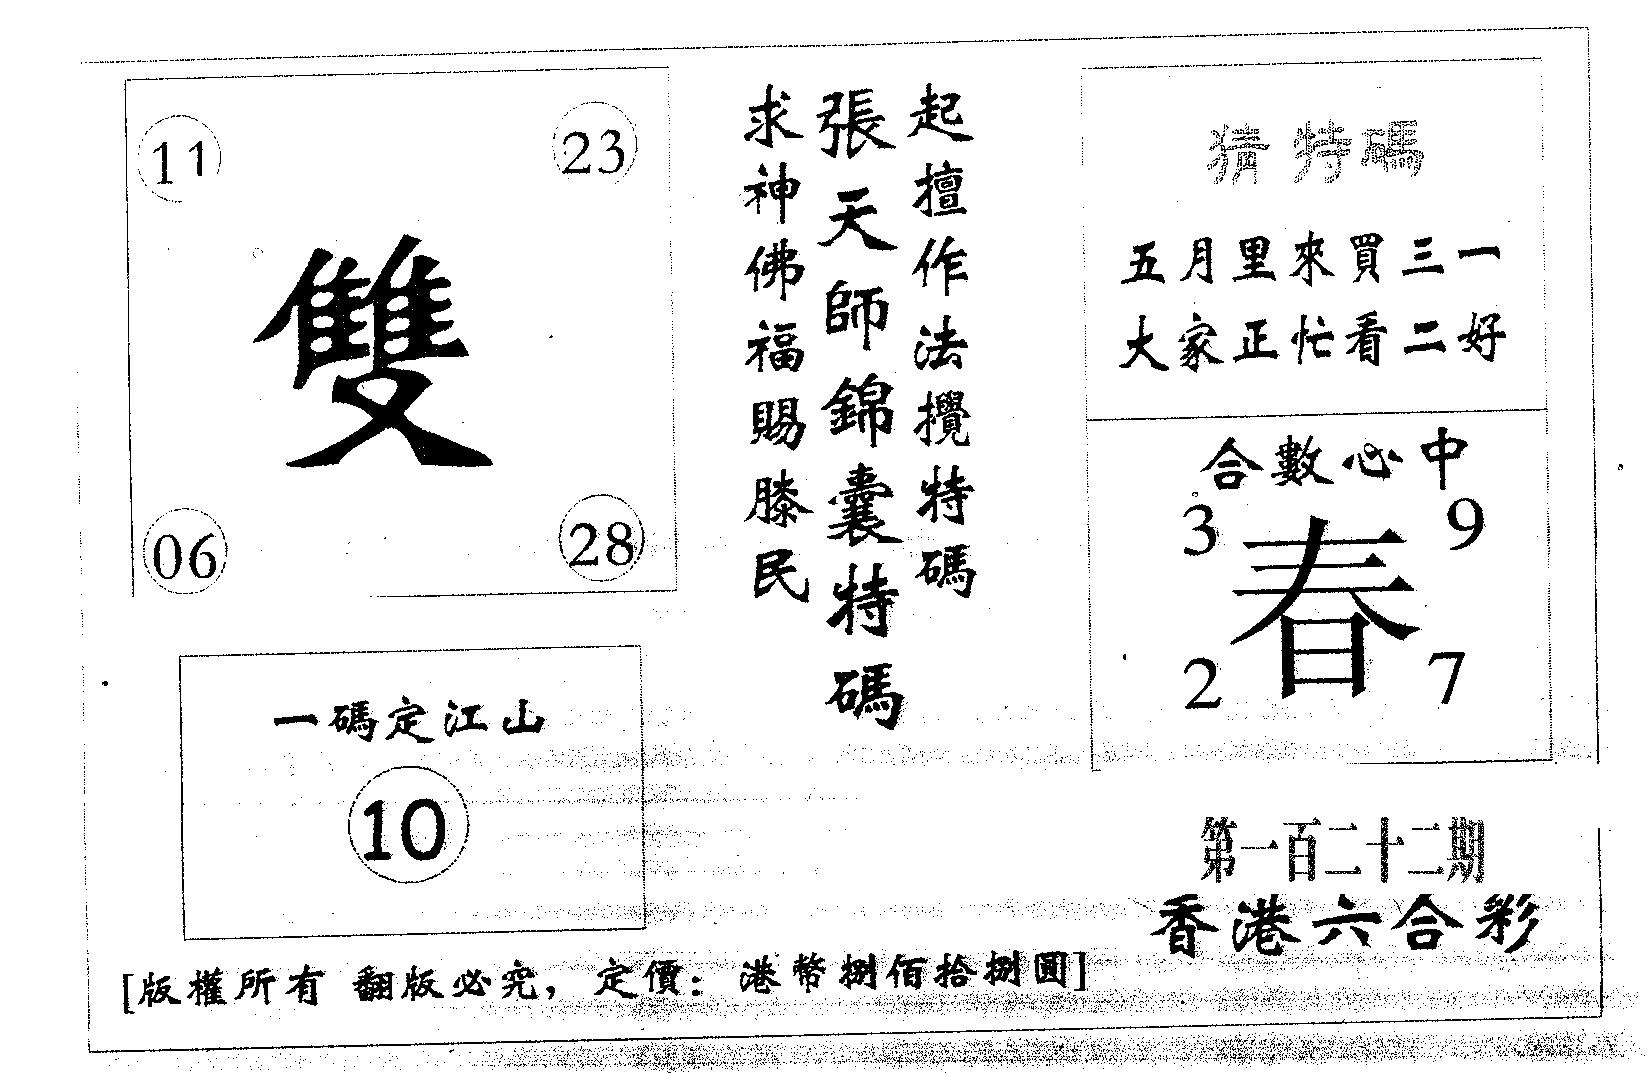 11
23
雙
06
28
一碼定江山
10
起擅作法攪特碼
張天師錦囊特碼
求神佛福賜滕民
猜特碼
五月里來買三一
大家正忙看二好
合數心中
3
9
春
2
7
第一百二十二期
香港六合彩
[版權所有 翻版必究，定價：港幣捌佰拾捌圓]